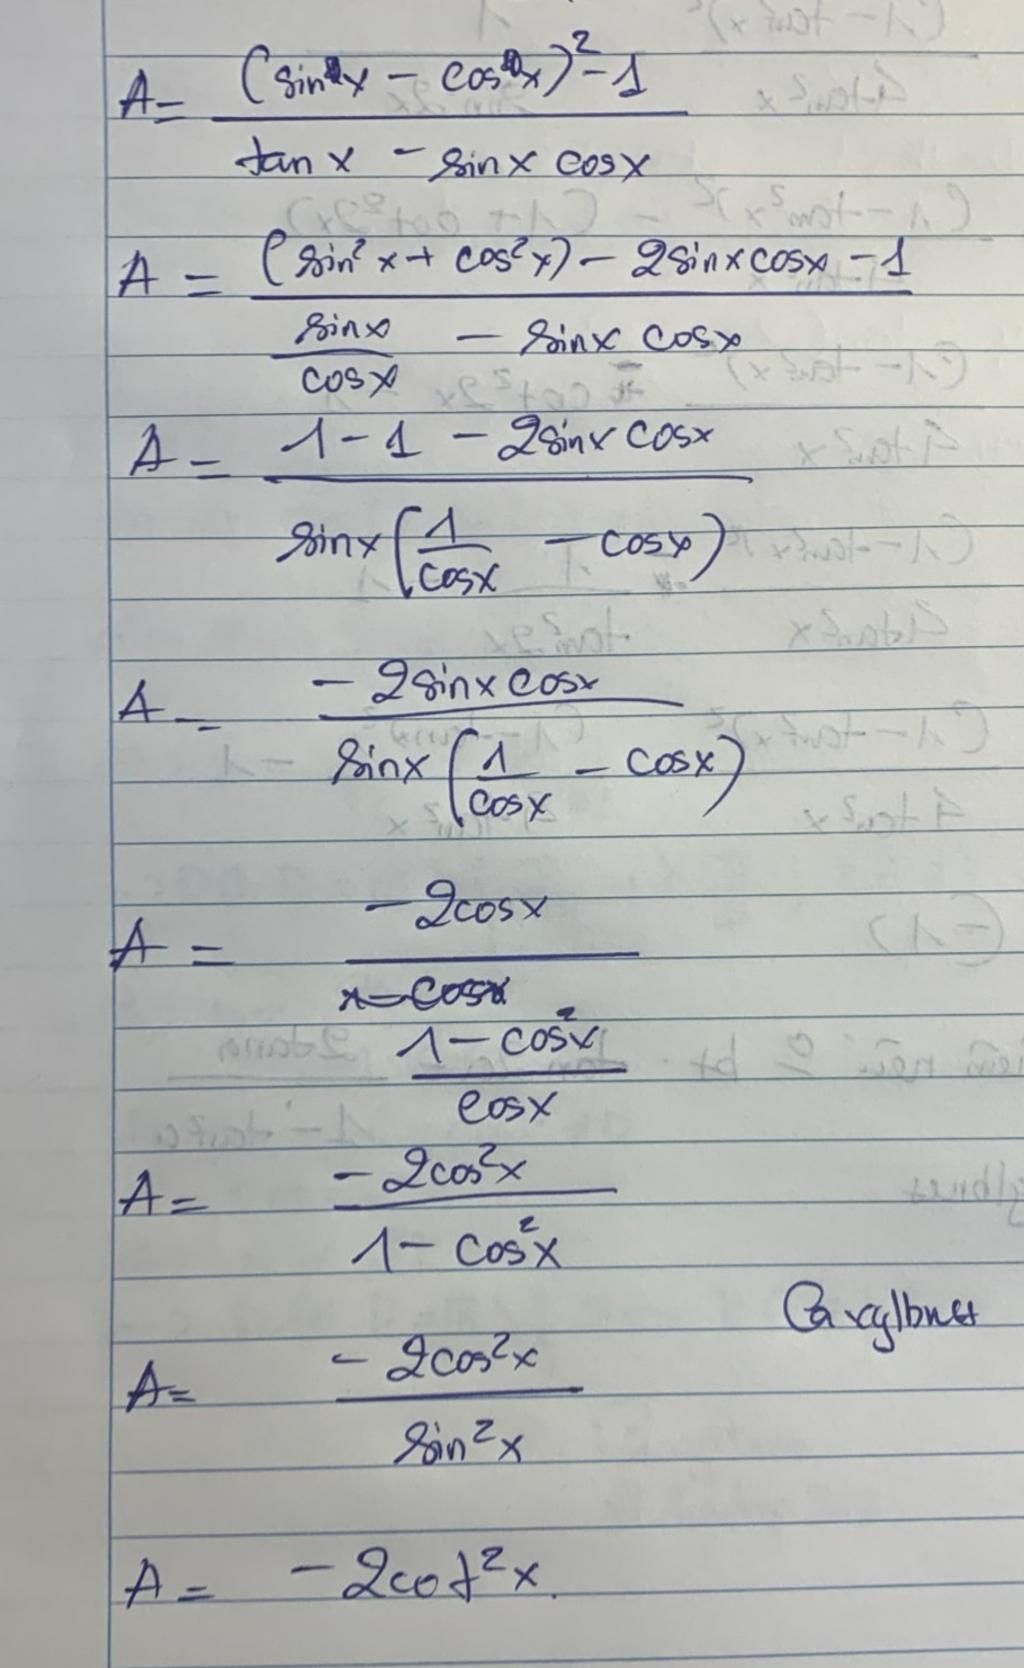 A = ((sin x - cos x)² - 1) / (tan x - sin x cos x)
A = ((sin² x + cos² x) - 2 sin x cos x - 1) / (sin x / cos x - sin x cos x)
A = (1 - 1 - 2 sin x cos x) / (sin x (1 / cos x - cos x))
A = (- 2 sin x cos x) / (sin x (1 / cos x - cos x))
A = (- 2 cos x) / ((1 - cos² x) / cos x)
A = (- 2 cos² x) / (1 - cos² x)
A = (- 2 cos² x) / (sin² x)
A = - 2 cot² x.